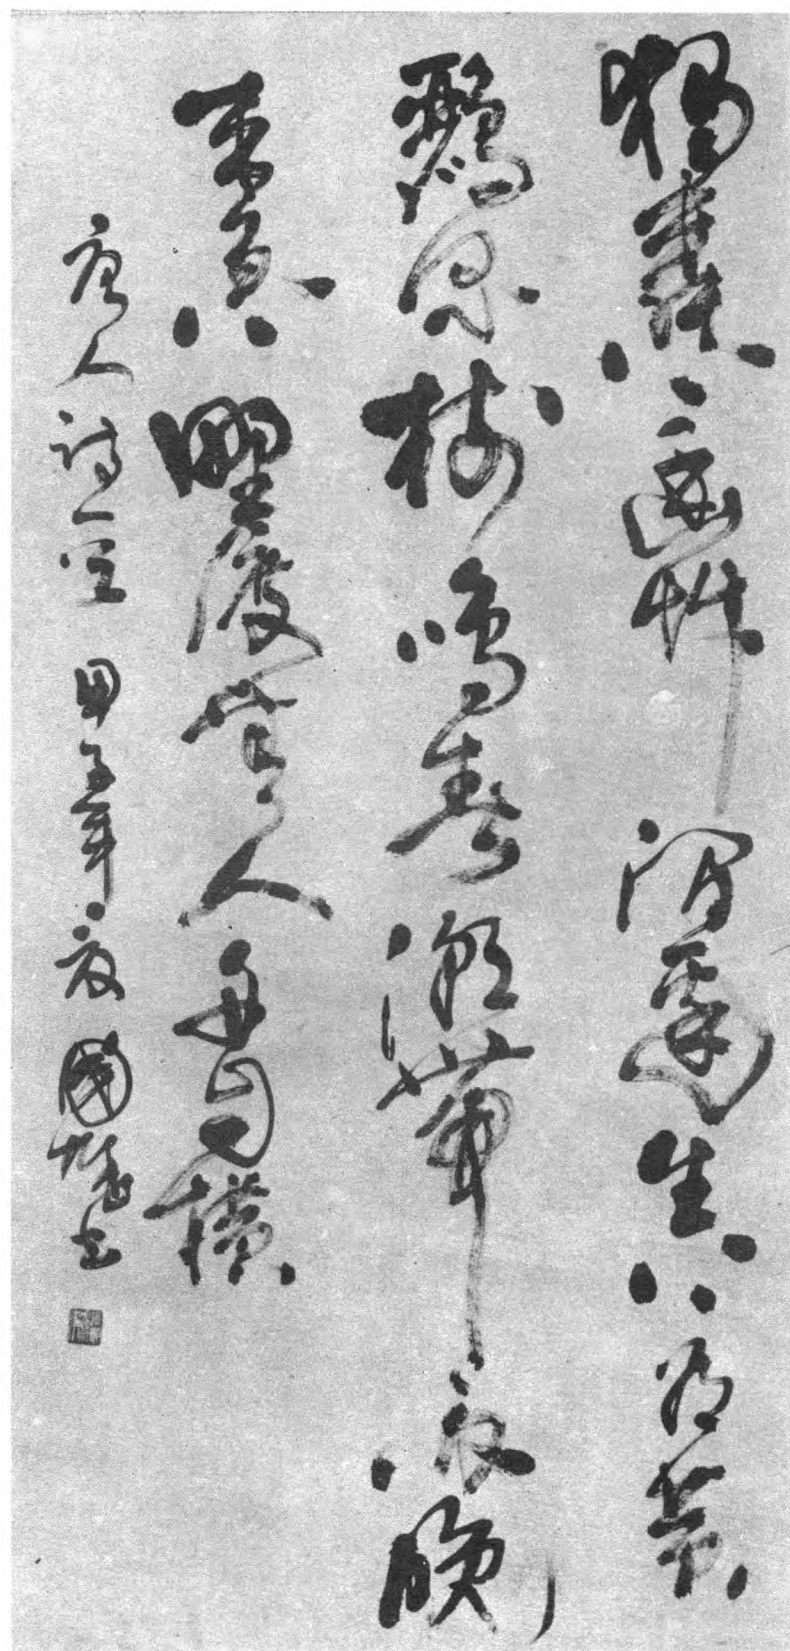 獨憐幽艸澗邊生上有黃
鸝深樹鳴春潮帶雨晚
來急野渡無人舟自橫
唐人詩一首 甲子年夏 國雄書